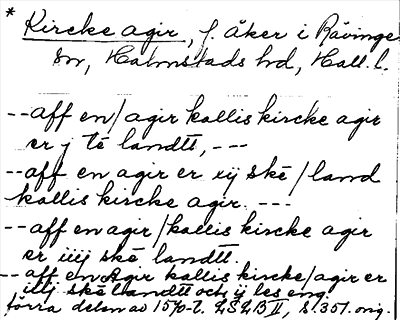 * Kircke agir, f. åker i Rävinge
sn, Halmstads hd, Hall. l.
-- aff en / agir kallis kircke agir
er j té landtt, ---
-- aff en agir er xij ské / land
kallis kircke agir. ---
-- aff en agir / kallis kircke agir
er iiij ské landtt.
-- aff en Agir kallis kircke / agir er
iiij ské landtt och ij les eng.
förra delen av 1570-t. LSLB II, s. 351. orig.